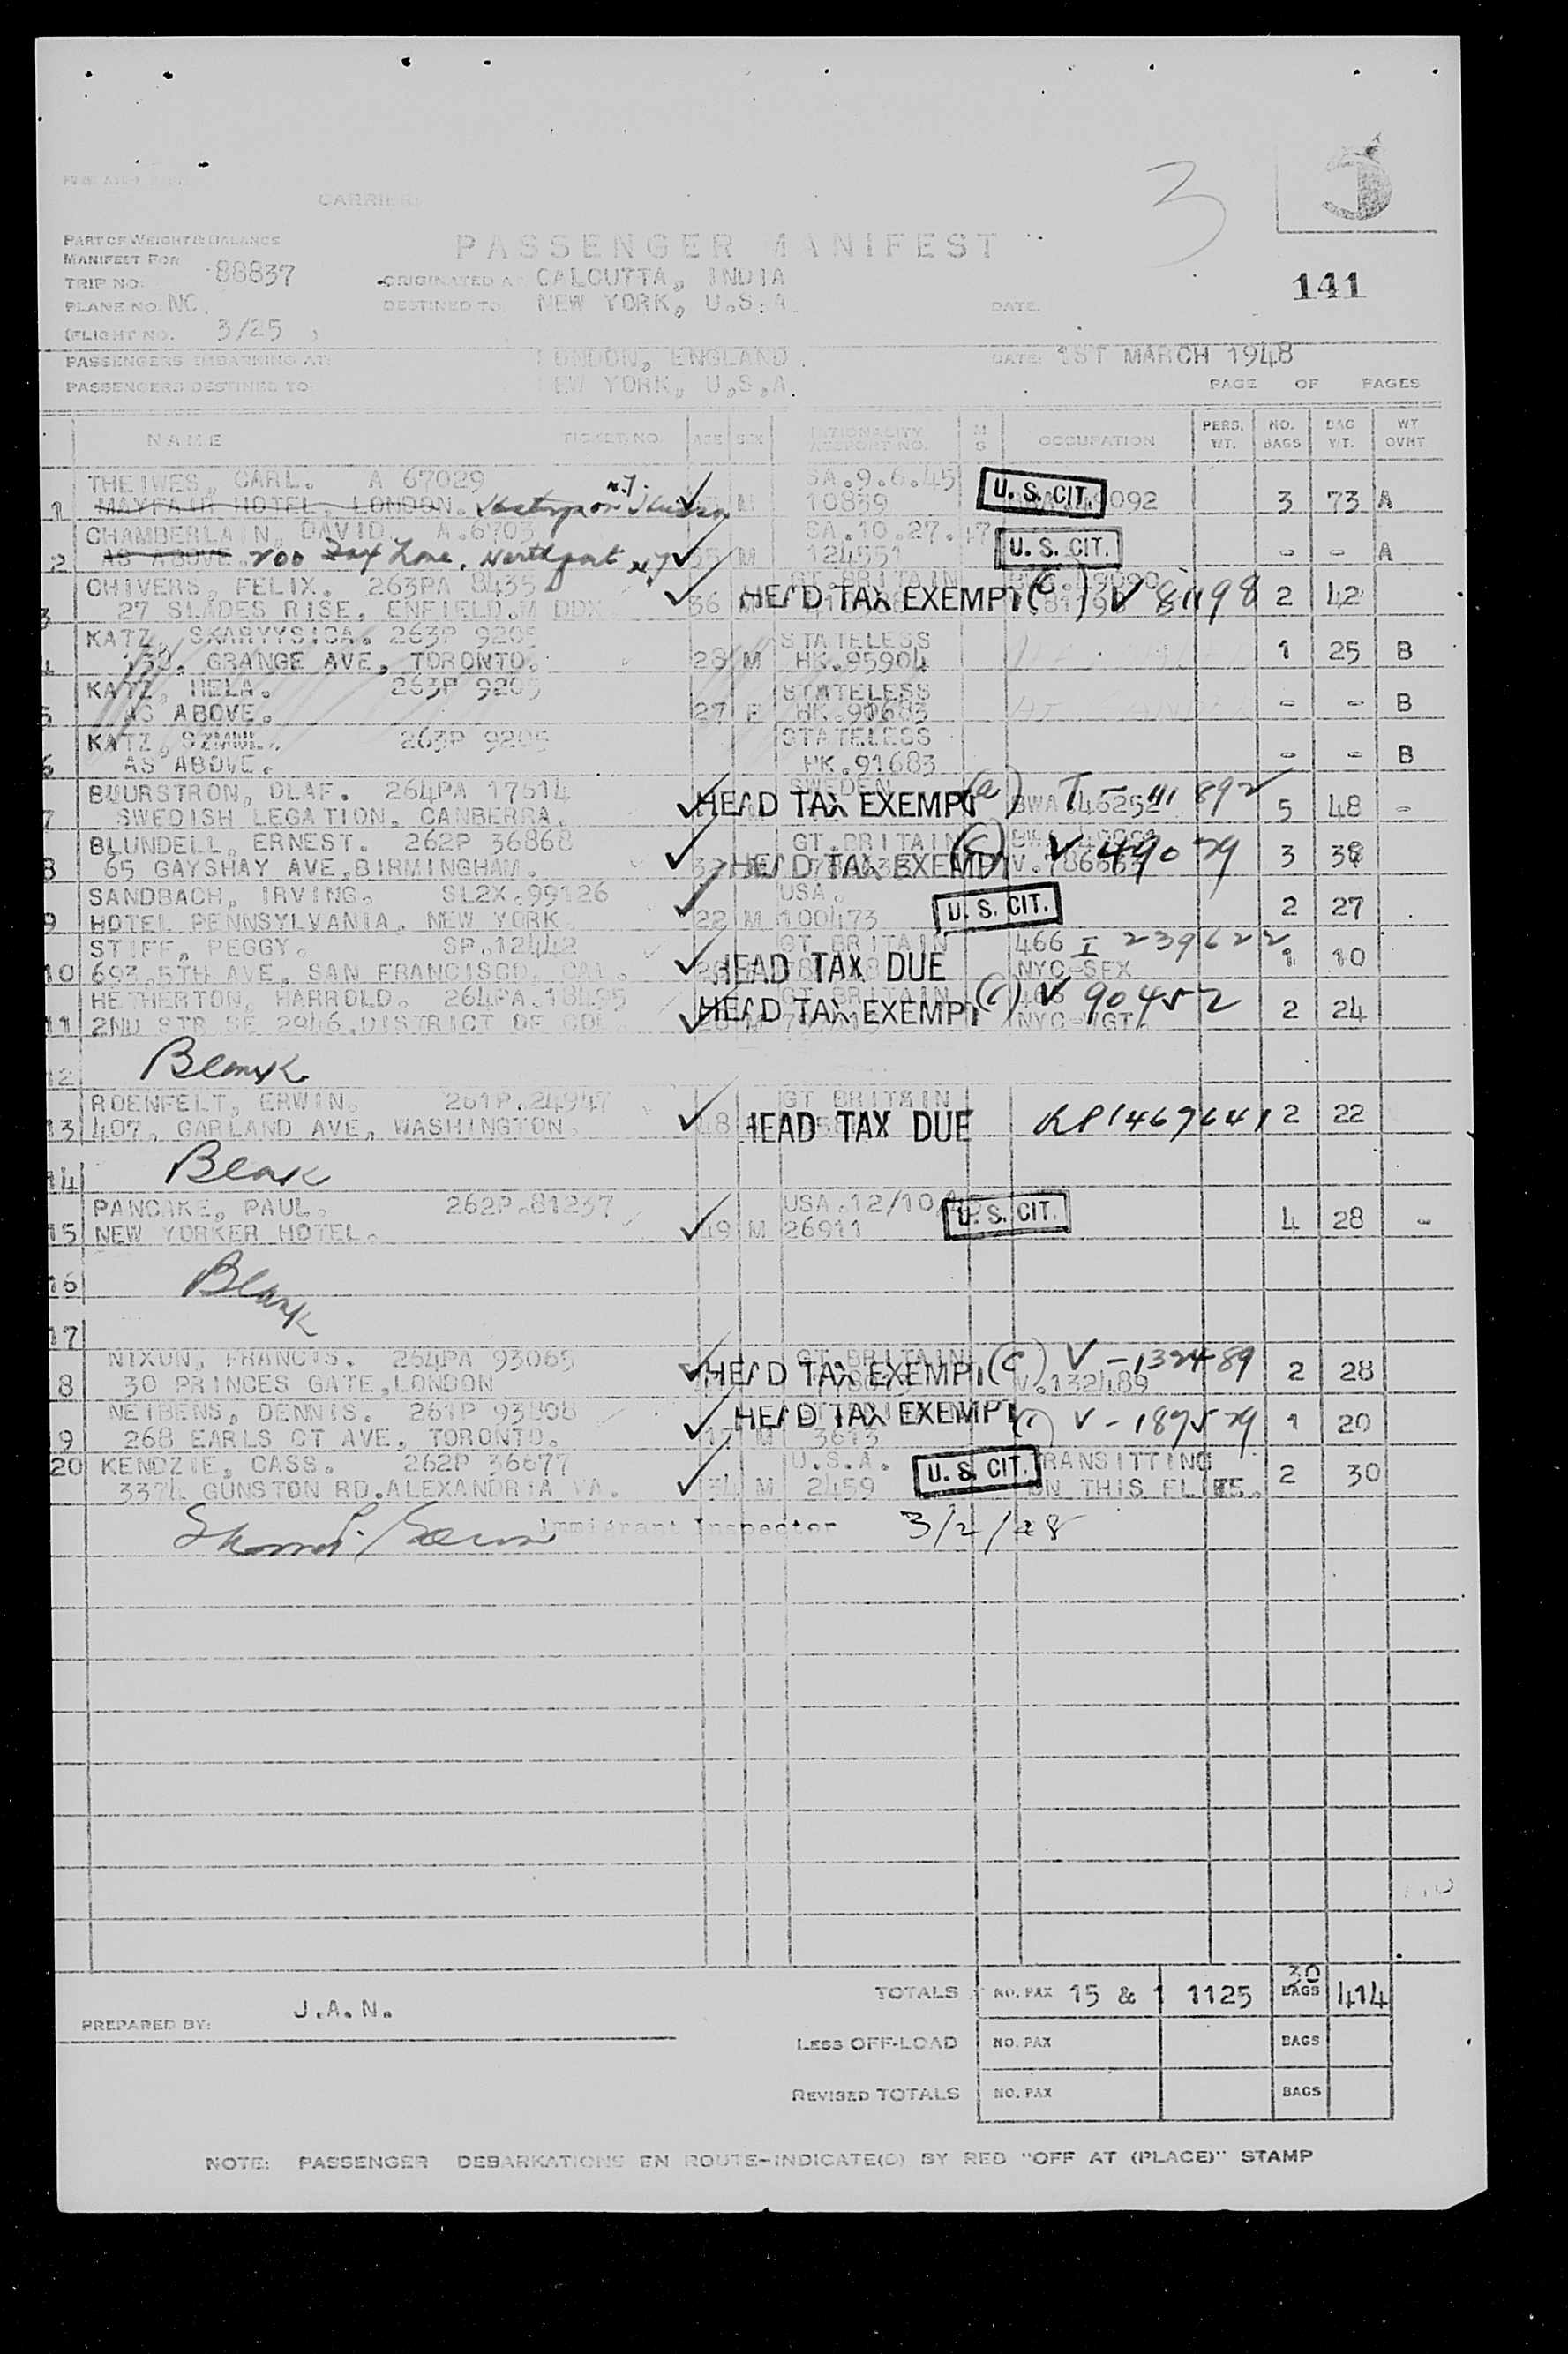 CARRIER
3
PART OF WEIGHT & BALANCE
MANIFEST FOR
PASSENGER MANIFEST
TRIP NO. 88837
ORIGINATED AT CALCUTTA, INDIA
141
PLANE NO. NC.
DESTINED TO. NEW YORK, U.S.A.
DATE.
(FLIGHT NO. 3/25 )
PASSENGERS EMBARKING AT: LONDON, ENGLAND.
DATE: 1ST MARCH 1948
PASSENGERS DESTINED TO: NEW YORK, U.S.A.
PAGE OF PAGES
NAME TICKET NO. AGE SEX NATIONALITY PASSPORT NO. M S OCCUPATION PERS. WT. NO. BAGS BAG WT. WT OVNT
THEIWES, CARL. A 67029 SA.9.6.45
1 MAYFAIR HOTEL, LONDON. N.Y. M 10839 U. S. CIT. 092 3 73 A
CHAMBERLAIN, DAVID. A.6703 SA.10.27.47
2 AS ABOVE. 200 Lane, Northport NY 35 M 124551 U. S. CIT. - - A
CHIVERS, FELIX. 263PA 8435 GT.BRITAIN
3 27 SLADES RISE, ENFIELD.M DDX 36 HEAD TAX EXEMPT (c) V 81198 2 42
KATZ, SKARYYSICA. 263P 9205 STATELESS
4 130, GRANGE AVE, TORONTO. 28 M HK.95904 1 25 B
KATZ, HELA. 263P 9205 STATELESS
5 AS ABOVE. 27 F HK.91683 - - B
KATZ, SZMUL. 263P 9205 STATELESS
6 AS ABOVE. HK.91683 - - B
BUURSTRON, OLAF. 264PA 17514 SWEDEN
7 SWEDISH LEGATION, CANBERRA. HEAD TAX EXEMPT (a) BWA T- 5 48 -
BLUNDELL, ERNEST. 262P 36868 GT.BRITAIN
8 65 GAYSHAY AVE.BIRMINGHAM. HEAD TAX EXEMPT (c) V 49079 3 38
SANDBACH, IRVING. SL2X.99126 USA.
9 HOTEL PENNSYLVANIA, NEW YORK 22 M 100473 U. S. CIT. 2 27
STIFF, PEGGY. SP.12442 GT BRITAIN 466 I 239622
10 693.5TH AVE, SAN FRANCISCO, CAL. HEAD TAX DUE NYC-SFX 1 10
HETHERTON, HARROLD. 264PA.18495 GT BRITAIN
11 2ND STR SE 2946.DISTRICT OF COL HEAD TAX EXEMPT (c) V 90452 NYC-WGT. 2 24
12 Blank
ROENFELT, ERWIN. 261P.24947 GT BRITAIN
13 407, GARLAND AVE, WASHINGTON. 48 HEAD TAX DUE RP1469641 2 22
14 Blank
PANCAKE, PAUL. 262P.81237 USA.12/10/
15 NEW YORKER HOTEL. 49 M 26911 U. S. CIT. 4 28 -
16 Blank
17
NIXUN, FRANCIS. 264PA 93065 GT.BRITAIN
8 30 PRINCES GATE,LONDON HEAD TAX EXEMPT (c) V-132489 V.132489 2 28
NEIBENS, DENNIS. 261P 93808
9 268 EARLS CT AVE, TORONTO. M 3613 HEAD TAX EXEMPT (c) V-189579 1 20
20 KENDZIE, CASS. 262P 36677 U.S.A. TRANSITTING
3374 GUNSTON RD.ALEXANDRIA VA. 34 M 2459 U. S. CIT. ON THIS FLITE. 2 30
Immigrant Inspector 3/2/48
TOTALS NO. PAX 15 & 1 1125 30 BAGS 414
PREPARED BY: J.A.N.
LESS OFF-LOAD NO. PAX BAGS
REVISED TOTALS NO. PAX BAGS
NOTE: PASSENGER DEBARKATIONS EN ROUTE-INDICATE(D) BY RED "OFF AT (PLACE)" STAMP